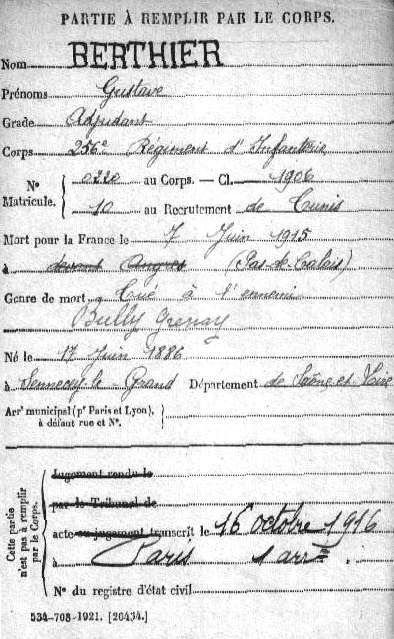 PARTIE À REMPLIR PAR LE CORPS.
Nom BERTHIER
Prénoms Gustave
Grade Adjudant
Corps 256e Régiment d'Infanterie
N° Matricule. { 0220 au Corps. — Cl. 1906
10 au Recrutement de Tunis
Mort pour la France le 7 Juin 1915
à devant Angres (Pas-de-Calais)
Genre de mort Tué à l'ennemi
Bully Grenay
Né le 17 Juin 1886
à Sennecey-le-Grand Département de Saône-et-Loire
Arrt municipal (pr Paris et Lyon),
à défaut rue et N°.
Cette partie n'est pas à remplir par le Corps.
Jugement rendu le
par le Tribunal de
acte ou jugement transcrit le 16 octobre 1916
à Paris 1 arrt
N° du registre d'état civil
534-708-1921. [26434.]